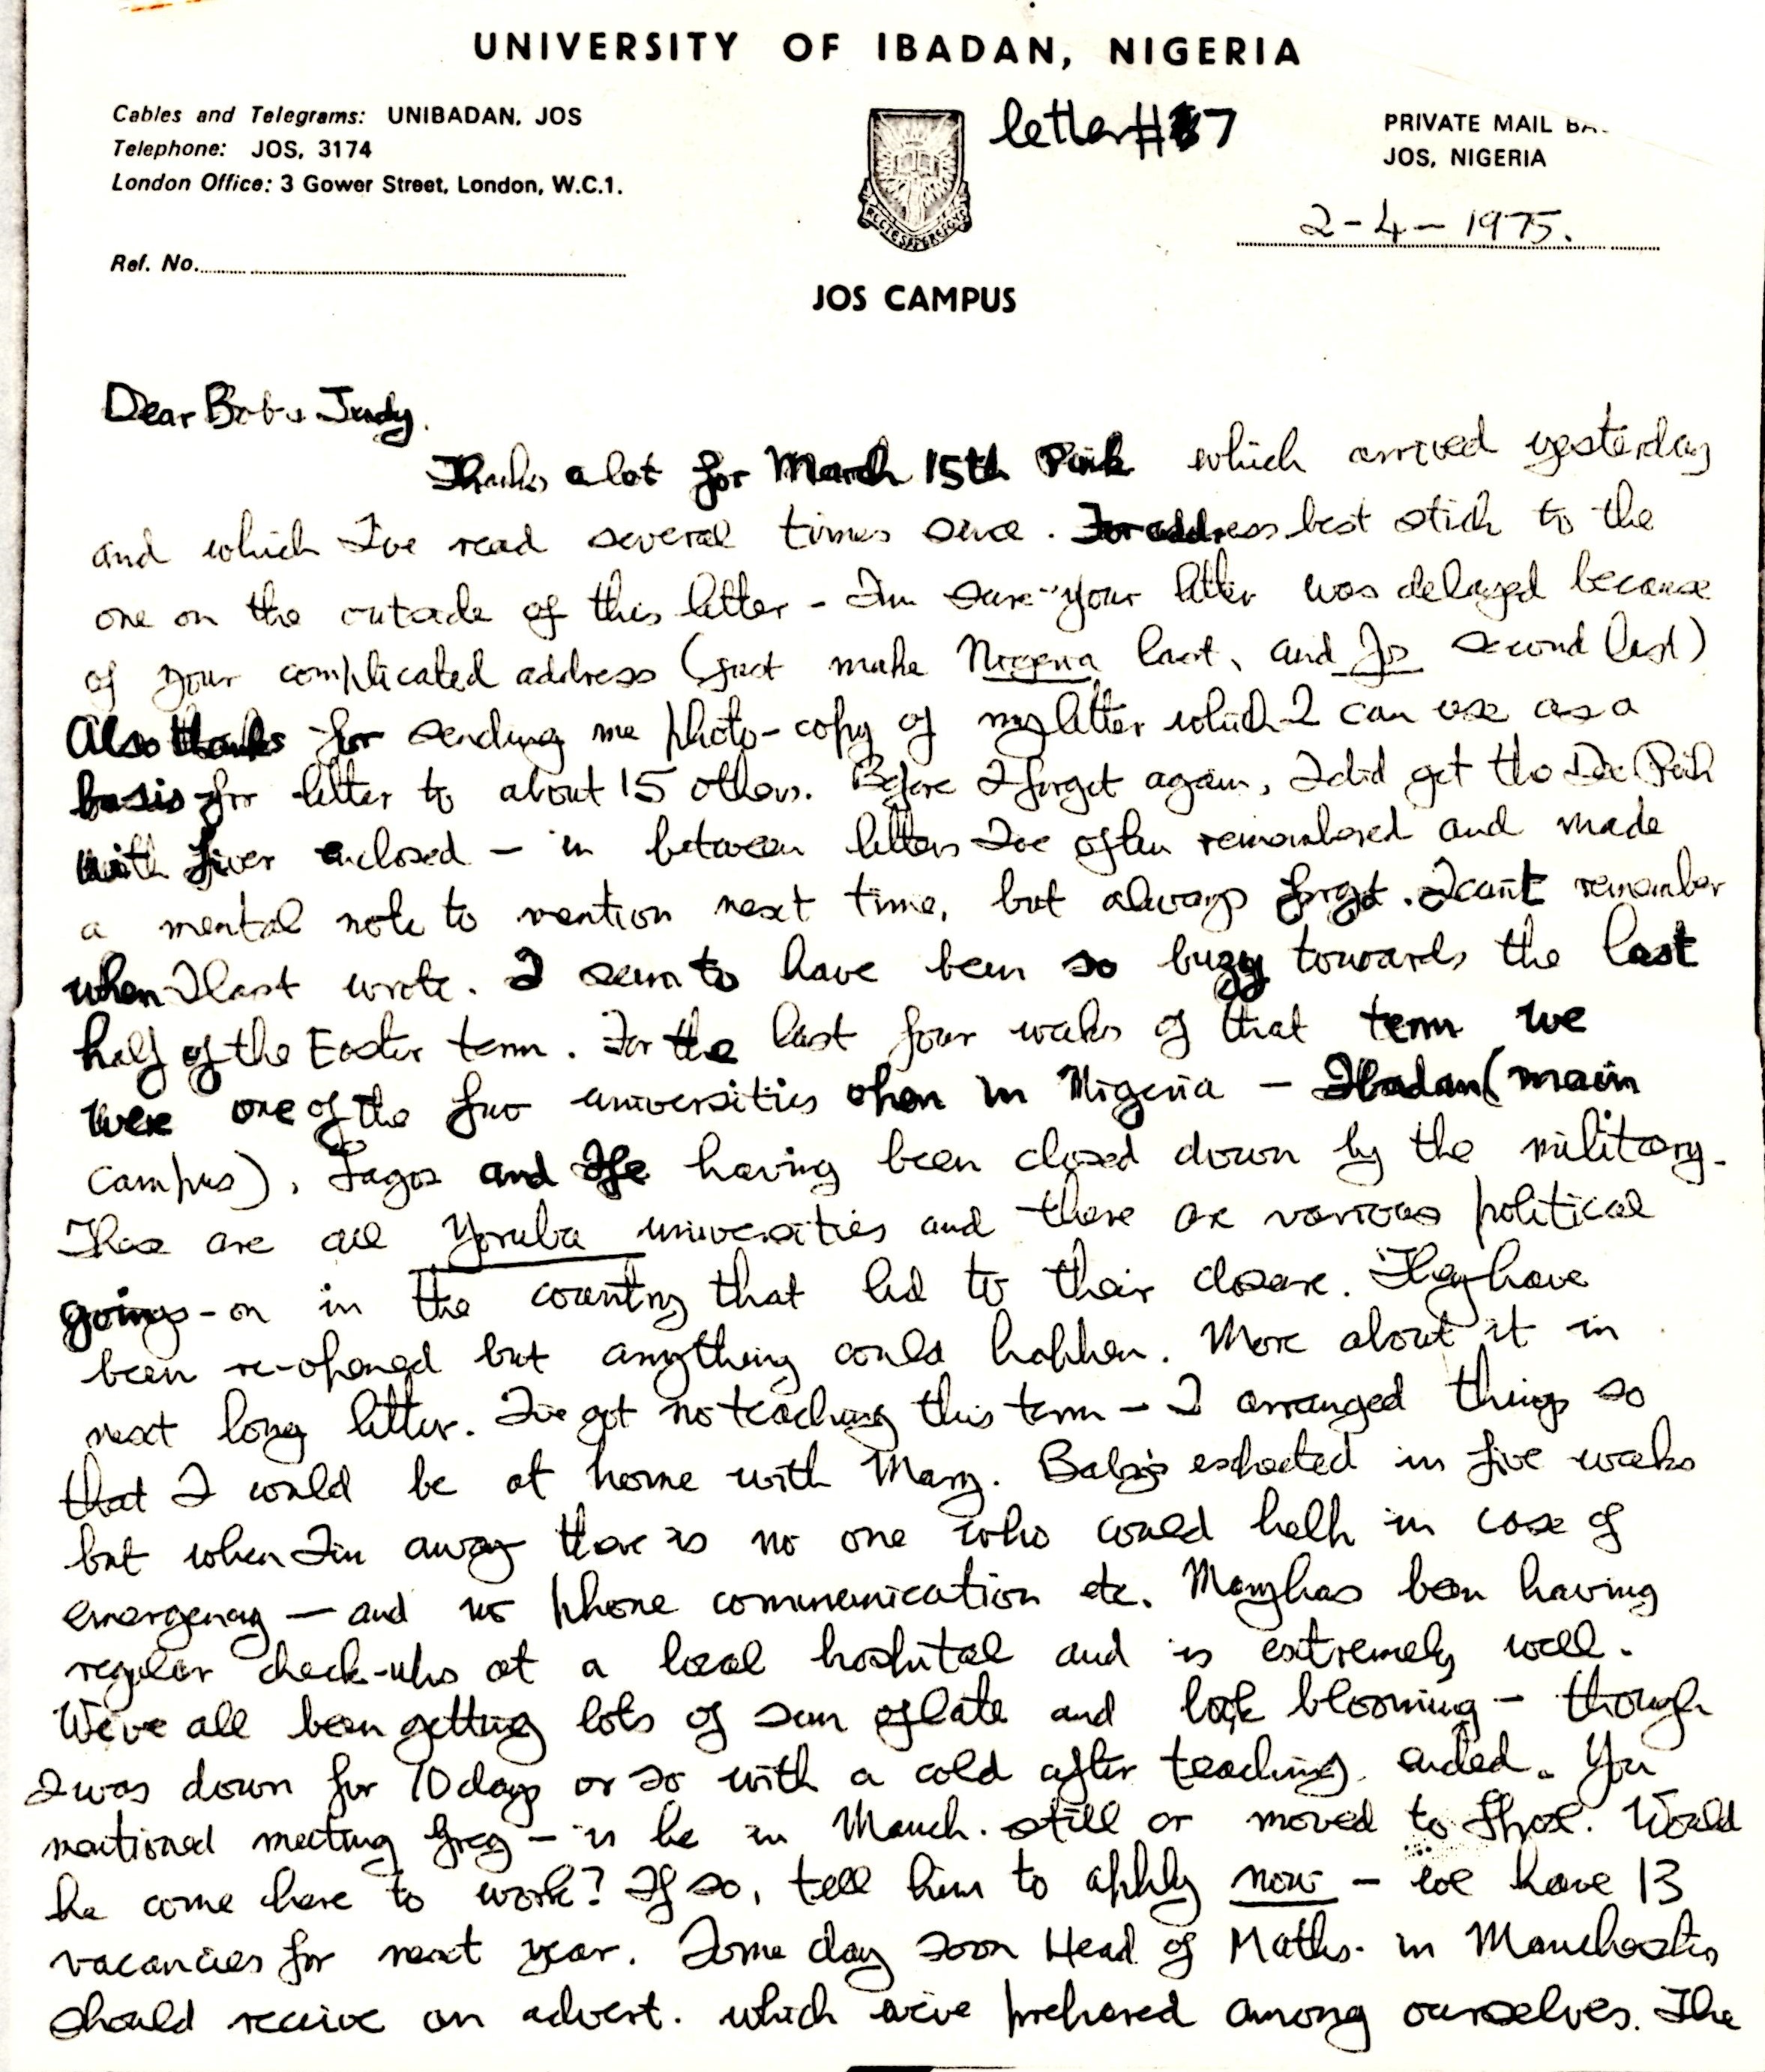 UNIVERSITY OF IBADAN, NIGERIA
Cables and Telegrams: UNIBADAN, JOS
Telephone: JOS, 3174
London Office: 3 Gower Street, London, W.C.1.
letter #7
PRIVATE MAIL
JOS, NIGERIA
2-4-1975.
Ref. No.
JOS CAMPUS
Dear Bob & Judy,
Thanks a lot for March 15th which arrived yesterday
and which I've read several times since. For address best stick to the
one on the outside of this letter - I'm sure your letter was delayed because
of your complicated address (just make Nigeria last, and Jos second last)
Also thanks for sending me photo-copy of my letter which I can use as a
basis for letter to about 15 others. Before I forget again, I did get the Dec
with fiver enclosed - in between letters I've often remembered and made
a mental note to mention next time, but always forget. I can't remember
when I last wrote. I seem to have been so buzy towards the last
half of the Easter term. For the last four weeks of that term we
were one of the few universities open in Nigeria - Ibadan (main
campus), Lagos and Ife having been closed down by the military.
These are all Yoruba universities and there are various political
goings-on in the country that led to their closure. They have
been re-opened but anything could happen. More about it in
next long letter. I've got no teaching this term - I arranged things so
that I would be at home with Mary. Baby's expected in five weeks
but when I'm away there is no one who could help in case of
emergency - and no phone communication etc. Mary has been having
regular check-ups at a local hospital and is extremely well.
We've all been getting lots of sun of late and look blooming - though
I was down for 10 days or so with a cold after teaching ended. You
mentioned meeting Greg - is he in Manch. still or moved to Would
he come here to work? If so, tell him to apply now - we have 13
vacancies for next year. Some day soon Head of Maths. in Manchester
should receive an advert. which we've prepared among ourselves. The